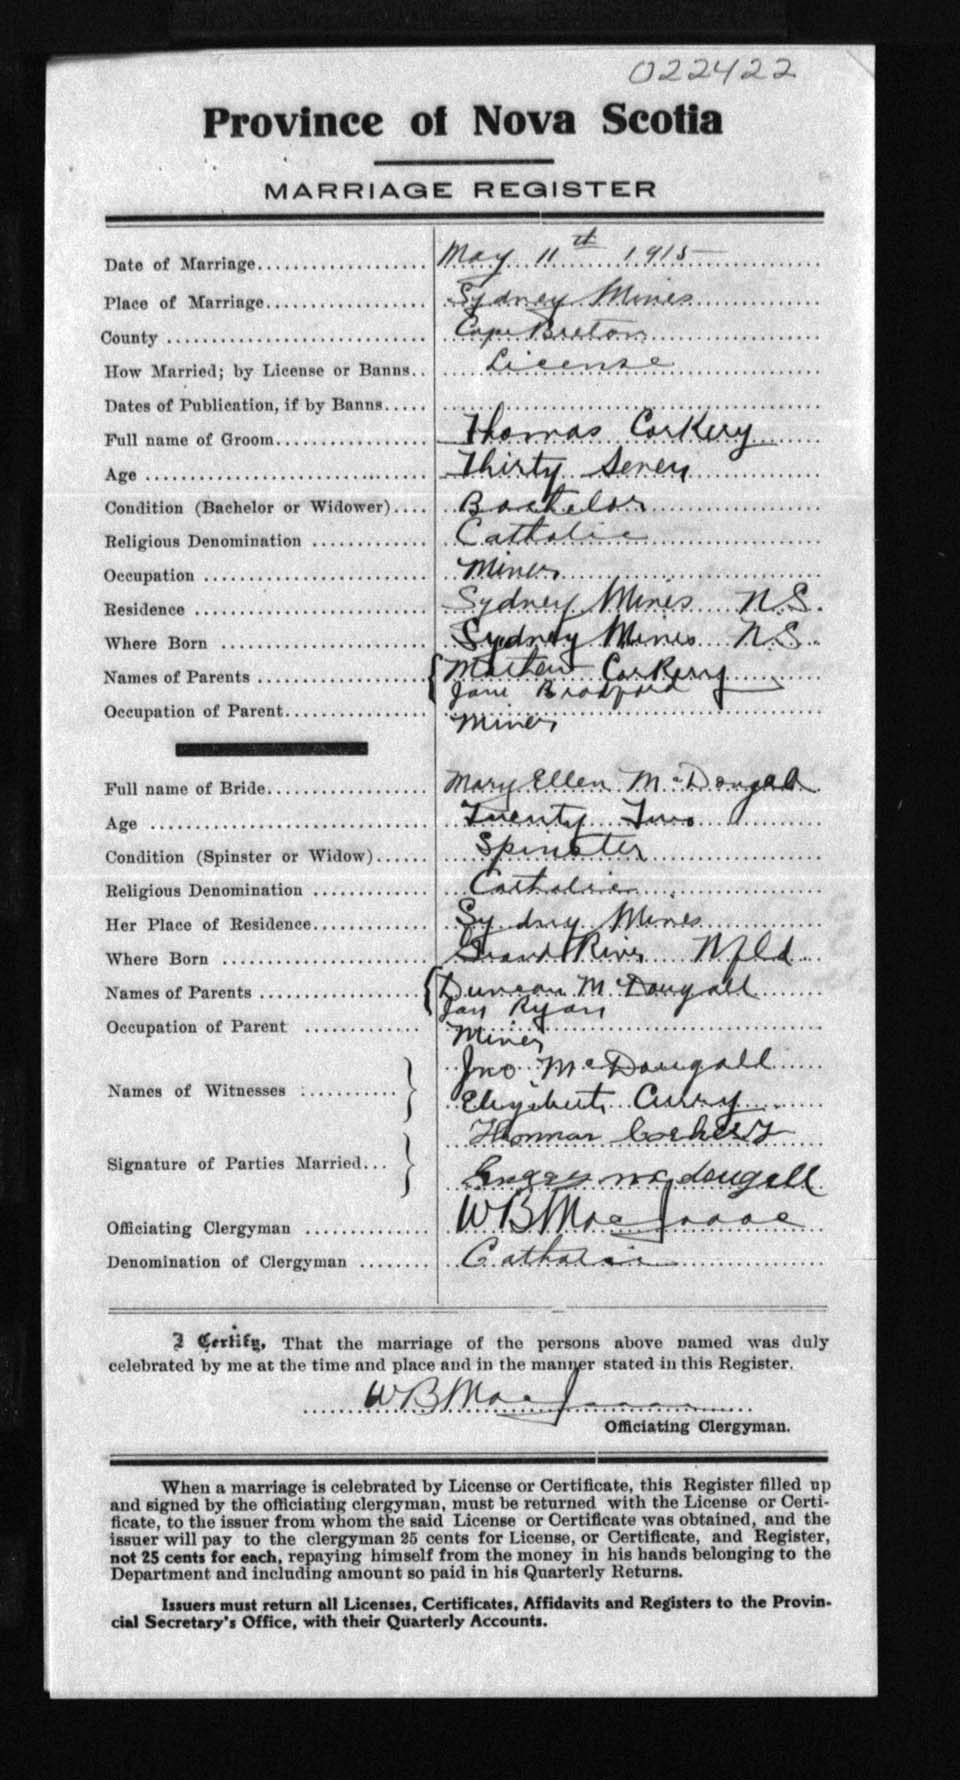 022422
Province of Nova Scotia
MARRIAGE REGISTER
Date of Marriage.................... May 11th 1915
Place of Marriage................... Sydney Mines
County .............................. Cape Breton
How Married; by License or Banns.. License
Dates of Publication, if by Banns.....
Full name of Groom.................. Thomas Corkery
Age ................................. Thirty Seven
Condition (Bachelor or Widower).... Bachelor
Religious Denomination ............. Catholic
Occupation .......................... Miner
Residence ........................... Sydney Mines N.S.
Where Born ......................... Sydney Mines N S.
Names of Parents .................... Mathew Corkery
Jane Bradford
Occupation of Parent................. Miner
Full name of Bride................... Mary Ellen McDougall
Age ................................. Twenty Two
Condition (Spinster or Widow)...... Spinster
Religious Denomination ............. Catholic
Her Place of Residence............. Sydney Mines
Where Born ......................... Grand River Nfld
Names of Parents ................... Duncan McDougall
Jan Ryan
Occupation of Parent ............. Miner
Names of Witnesses : ........... Jno McDougall
Elizabeth Curry
Signature of Parties Married... Thomas Corkery
McDougall
Officiating Clergyman ............. W B MacIsaac
Denomination of Clergyman ........ Catholic
I Certify, That the marriage of the persons above named was duly
celebrated by me at the time and place and in the manner stated in this Register.
W B MacIsaac
Officiating Clergyman.
When a marriage is celebrated by License or Certificate, this Register filled up
and signed by the officiating clergyman, must be returned with the License or Certi-
ficate, to the issuer from whom the said License or Certificate was obtained, and the
issuer will pay to the clergyman 25 cents for License, or Certificate, and Register,
not 25 cents for each, repaying himself from the money in his hands belonging to the
Department and including amount so paid in his Quarterly Returns.
Issuers must return all Licenses, Certificates, Affidavits and Registers to the Provin-
cial Secretary's Office, with their Quarterly Accounts.